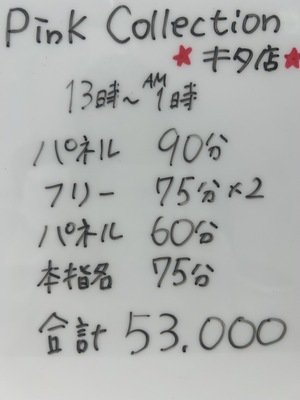 Pink Collection
★キタ店★
13時～AM1時
パネル 90分
フリー 75分×2
パネル 60分
本指名 75分
合計 53.000